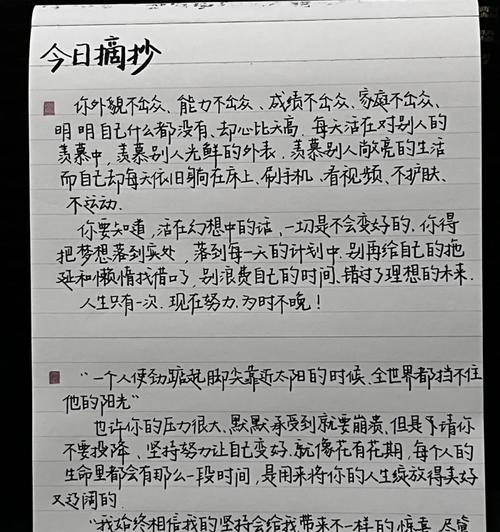 今日摘抄
你外貌不出众、能力不出众、成绩不出众、家庭不出众、
明明自己什么都没有、却心比天高.每天活在对别人的
羡慕中,羡慕别人光鲜的外表,羡慕别人敞亮的生活
而自己却每天依旧躺在床上、刷手机、看视频、不护肤、
不运动.
你要知道,活在幻想中的话,一切是不会变好的.你得
把梦想落到实处,落到每一天的计划中.别再给自己的拖
延和懒惰找借口了,别浪费自己的时间.错过了理想的未来.
人生只有一次.现在努力.为时不晚!
"一个人使劲踮起脚尖靠近太阳的时候.全世界都挡不住
他的阳光"
也许你的压力很大、默默承受到就要崩溃、但是予请你
不要投降、坚持努力让自己变好.就像花有花期,每个人的
生命里都会有那么一段时间,是用来将你的人生绽放得美好
又辽阔的.
"我始终相信我的坚持会给我带来不一样的惊喜.尽管